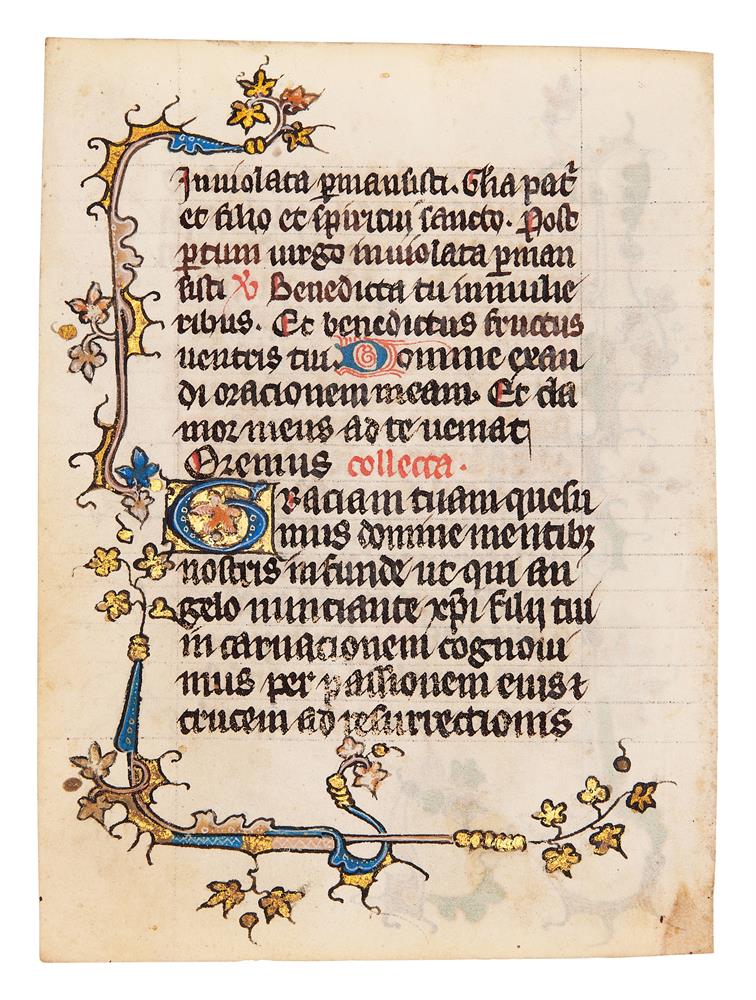 Inuiolata ꝑmansisti. Gl̃ia pat̃
et filio et spiritui sancto. Post
ꝑtum uirgo inuiolata ꝑman
sisti ℣ Benedicta tu in mulie
ribus. Et benedictus fructus
uentris tui. Domine exau
di oracionem meam. Et cla
mor meus ad te ueniat
Oremus collecta.
Graciam tuam quesu
mus domine mentibꝫ
nostris infunde ut qui an
gelo nunciante xp̃i filij tui
in carnacionem cognoui
mus per passionem eius ⁊
crucem ad resurrectionis